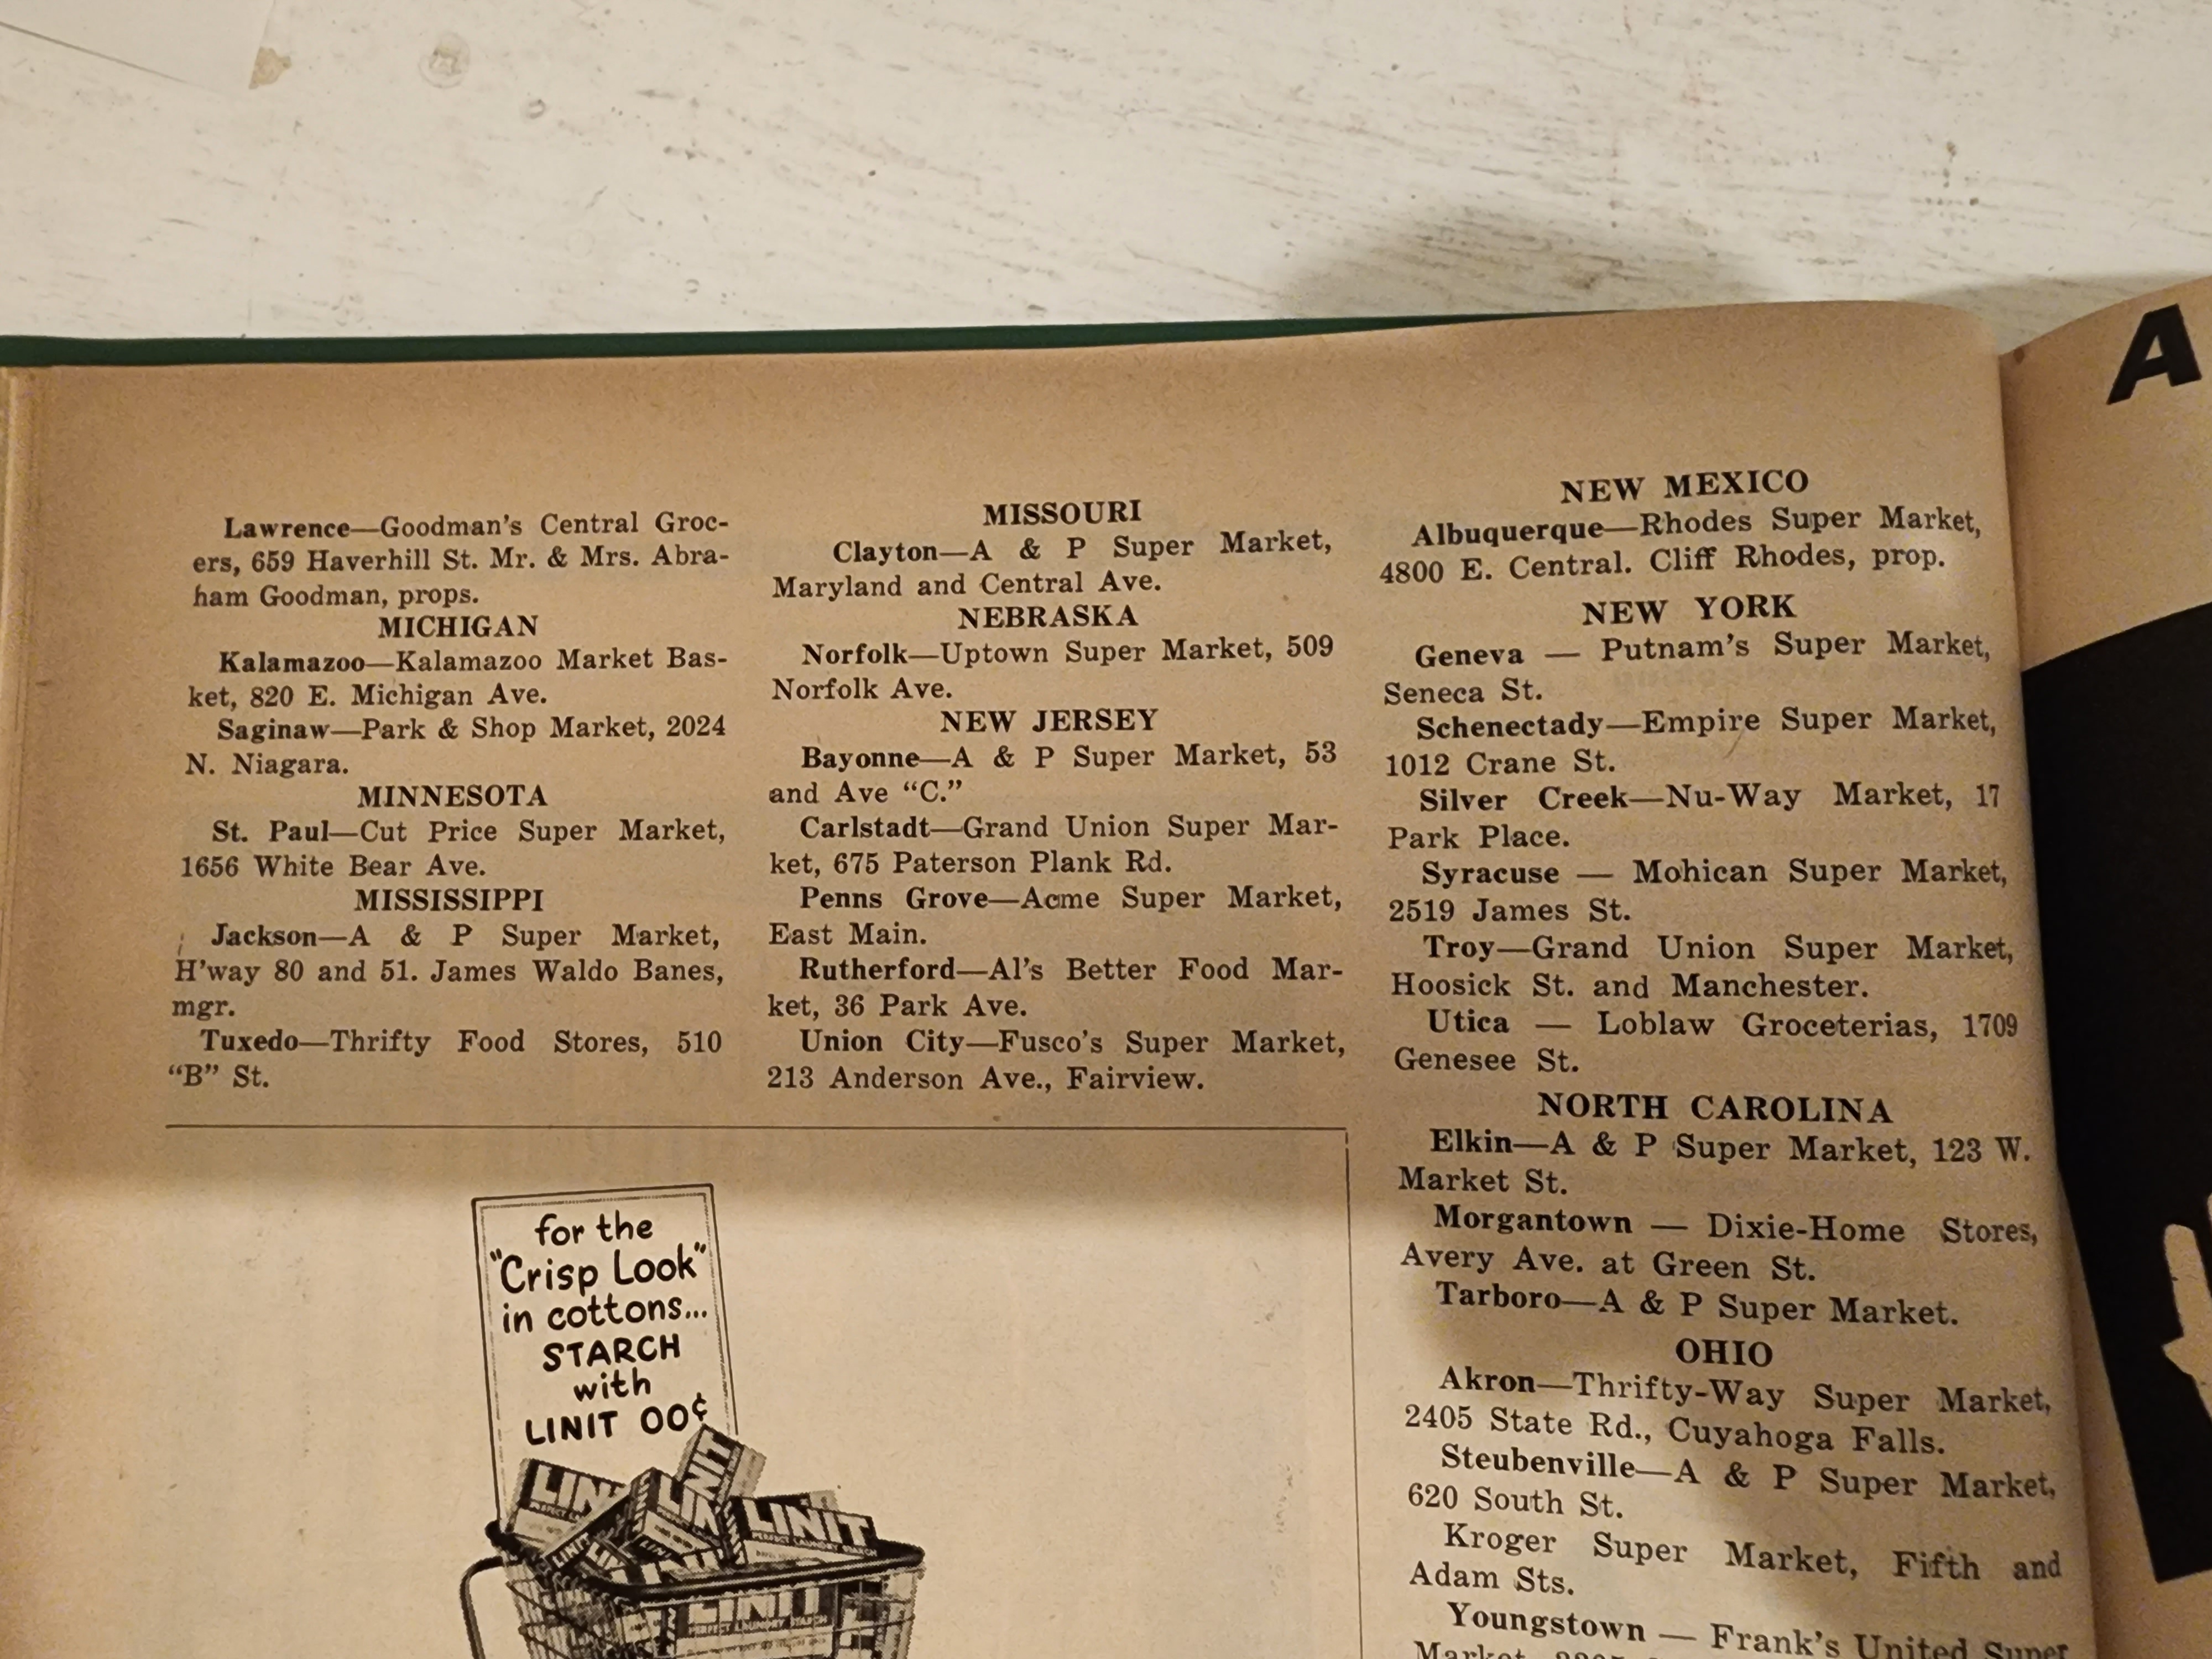 Lawrence—Goodman's Central Groc-
ers, 659 Haverhill St. Mr. & Mrs. Abra-
ham Goodman, props.
MICHIGAN
Kalamazoo—Kalamazoo Market Bas-
ket, 820 E. Michigan Ave.
Saginaw—Park & Shop Market, 2024
N. Niagara.
MINNESOTA
St. Paul—Cut Price Super Market,
1656 White Bear Ave.
MISSISSIPPI
Jackson—A & P Super Market,
H'way 80 and 51. James Waldo Banes,
mgr.
Tuxedo—Thrifty Food Stores, 510
“B” St.
MISSOURI
Clayton—A & P Super Market,
Maryland and Central Ave.
NEBRASKA
Norfolk—Uptown Super Market, 509
Norfolk Ave.
NEW JERSEY
Bayonne—A & P Super Market, 53
and Ave “C.”
Carlstadt—Grand Union Super Mar-
ket, 675 Paterson Plank Rd.
Penns Grove—Acme Super Market,
East Main.
Rutherford—Al's Better Food Mar-
ket, 36 Park Ave.
Union City—Fusco's Super Market,
213 Anderson Ave., Fairview.
NEW MEXICO
Albuquerque—Rhodes Super Market,
4800 E. Central. Cliff Rhodes, prop.
NEW YORK
Geneva — Putnam's Super Market,
Seneca St.
Schenectady—Empire Super Market,
1012 Crane St.
Silver Creek—Nu-Way Market, 17
Park Place.
Syracuse — Mohican Super Market,
2519 James St.
Troy—Grand Union Super Market,
Hoosick St. and Manchester.
Utica — Loblaw Groceterias, 1709
Genesee St.
NORTH CAROLINA
Elkin—A & P Super Market, 123 W.
Market St.
Morgantown — Dixie-Home Stores,
Avery Ave. at Green St.
Tarboro—A & P Super Market.
OHIO
Akron—Thrifty-Way Super Market,
2405 State Rd., Cuyahoga Falls.
Steubenville—A & P Super Market,
620 South St.
Kroger Super Market, Fifth and
Adam Sts.
Youngstown — Frank's United Super
Market,
for the
"Crisp Look"
in cottons...
STARCH
with
LINIT 00¢
LINIT
LINIT
A